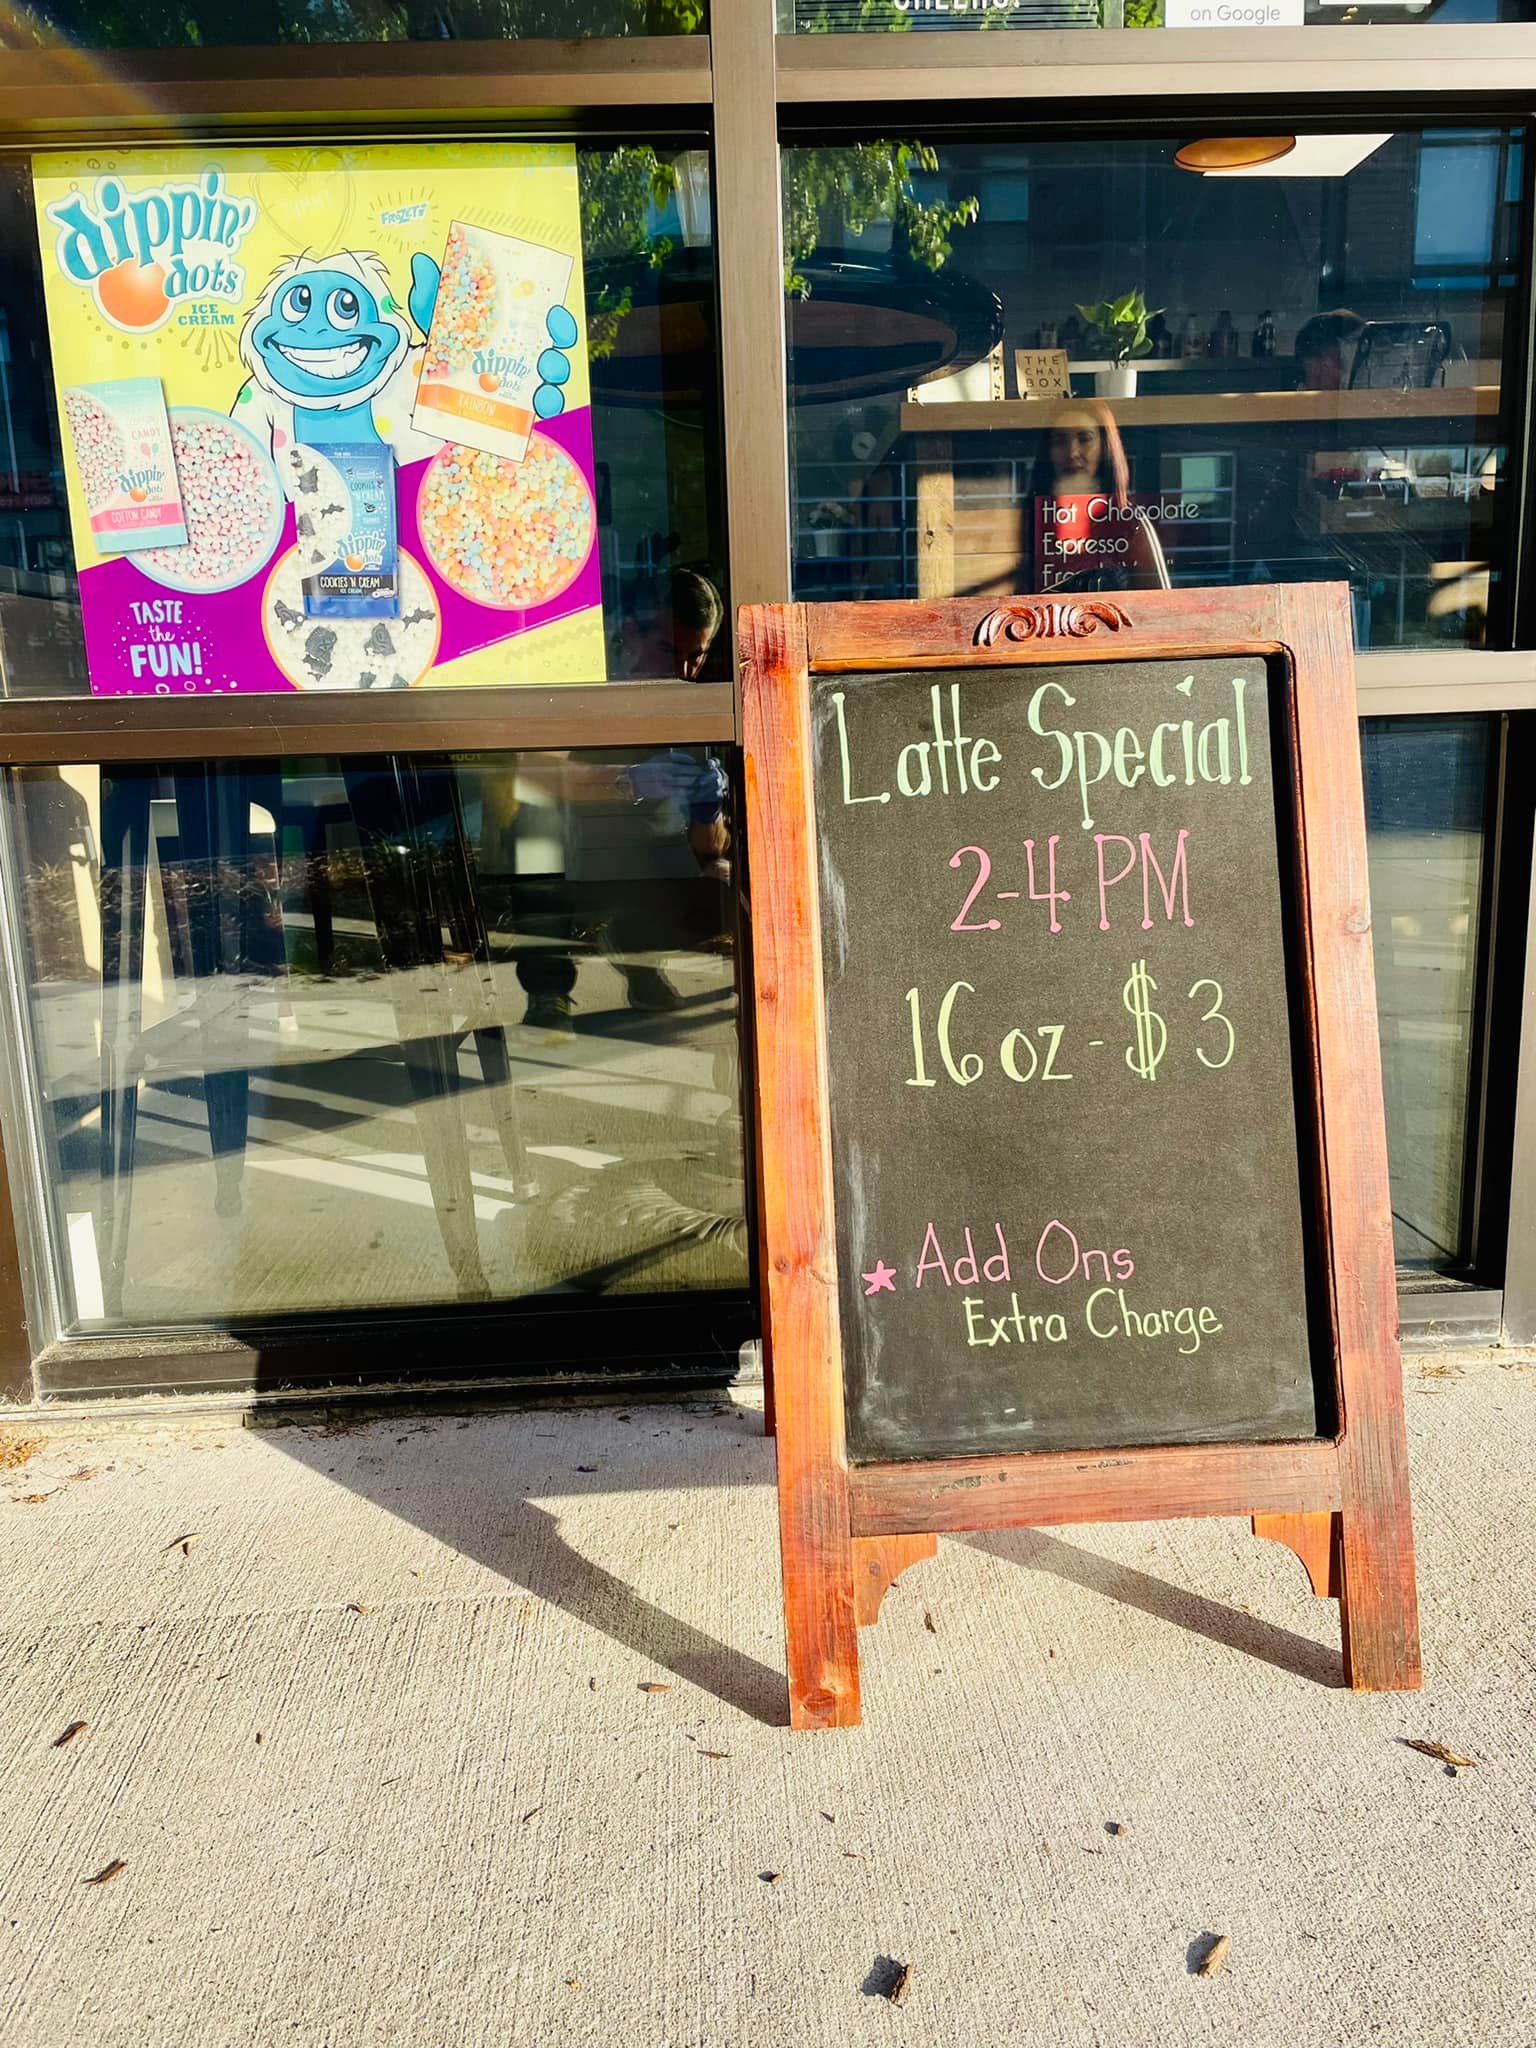 CHEERS!
on Google
dippin'
dots
ICE
CREAM
YUMMY
FROZETI
dippin'
dots
RAINBOW
CANDY
dippin'
dots
COTTON CANDY
COOKIES
'N CREAM
dippin'
dots
COOKIES 'N CREAM
ICE CREAM
TASTE
the
FUN!
THE
CHAI
BOX
Hot Chocolate
Espresso
Latte Special
2-4 PM
16 oz - $3
Add Ons
Extra Charge